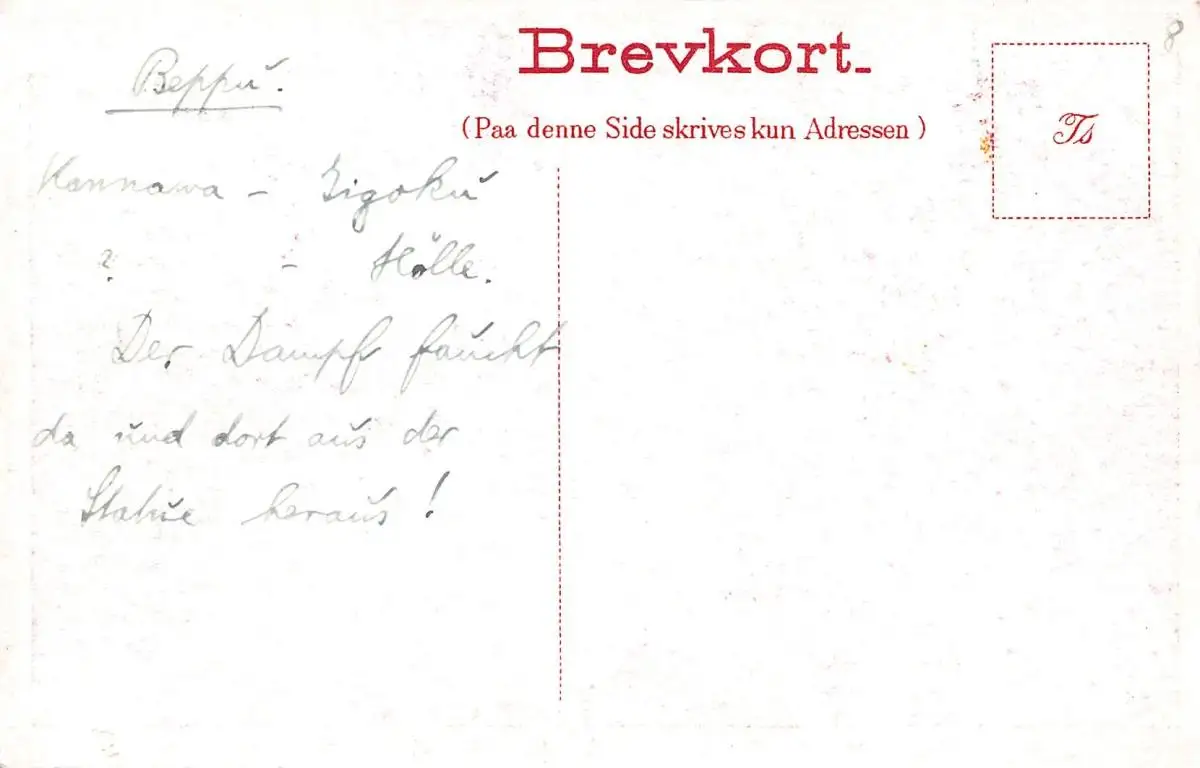 8
Brevkort.
(Paa denne Side skrives kun Adressen)
Ts
Beppu.
Kannawa - Zigoku
? - Hölle.
Der Dampf faucht
da und dort aus der
Statue heraus!